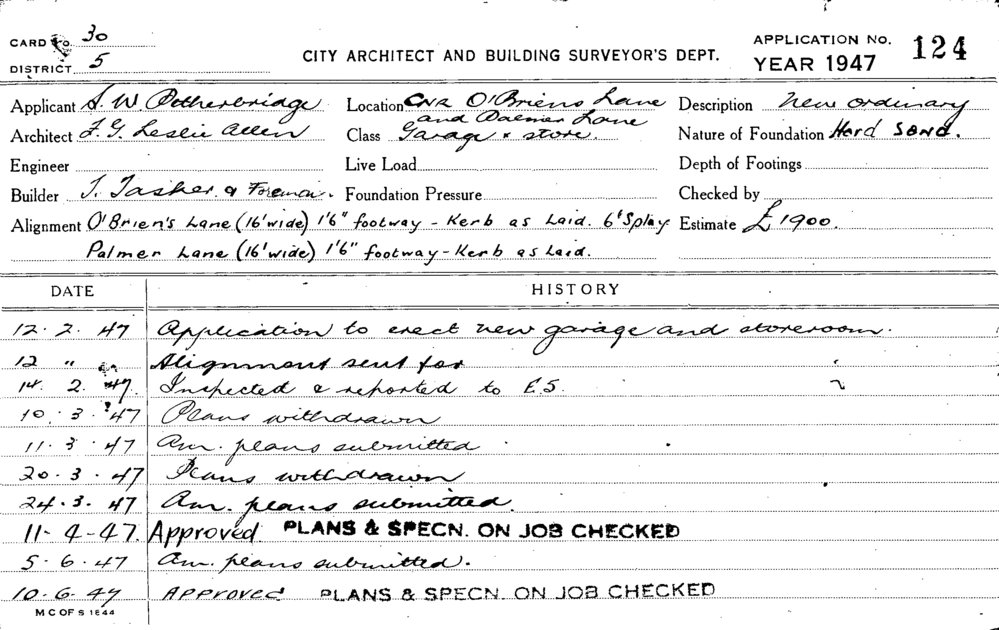 CARD No. 30
DISTRICT 5
CITY ARCHITECT AND BUILDING SURVEYOR'S DEPT.
APPLICATION No. 124
YEAR 1947
Applicant S. W. Potherbridge Location CNR O'Briens Lane and Palmer Lane Description New ordinary
Architect F. G. Leslie Allen Class Garage & store. Nature of Foundation Hard sand.
Engineer Live Load Depth of Footings
Builder T. Tasker a Foreman. Foundation Pressure Checked by
Alignment O'Brien's Lane (16' wide) 1'6" footway - Kerb as Laid. 6' Splay Estimate £1900.
Palmer Lane (16' wide) 1'6" footway - Kerb as Laid.
DATE HISTORY
12. 2. 47 Application to erect new garage and storeroom.
12 " Alignment sent for
14. 2. 47. Inspected & reported to E.S.
10. 3. 47 Plans withdrawn
11. 3. 47 Am. plans submitted
20. 3. 47 Plans withdrawn
24. 3. 47 Am. plans submitted.
11-4-47. Approved PLANS & SPECN. ON JOB CHECKED
5. 6. 47 Am. plans submitted.
10. 6. 47 APPROVED PLANS & SPECN. ON JOB CHECKED
M C OF S 1844